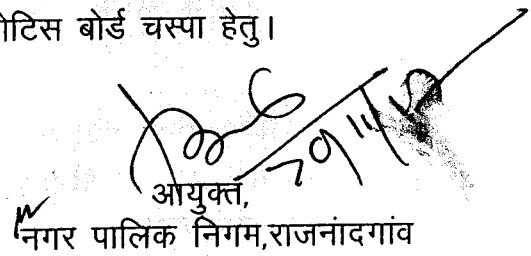 ोटिस बोर्ड चस्पा हेतु।
आयुक्त,
नगर पालिक निगम,राजनांदगांव